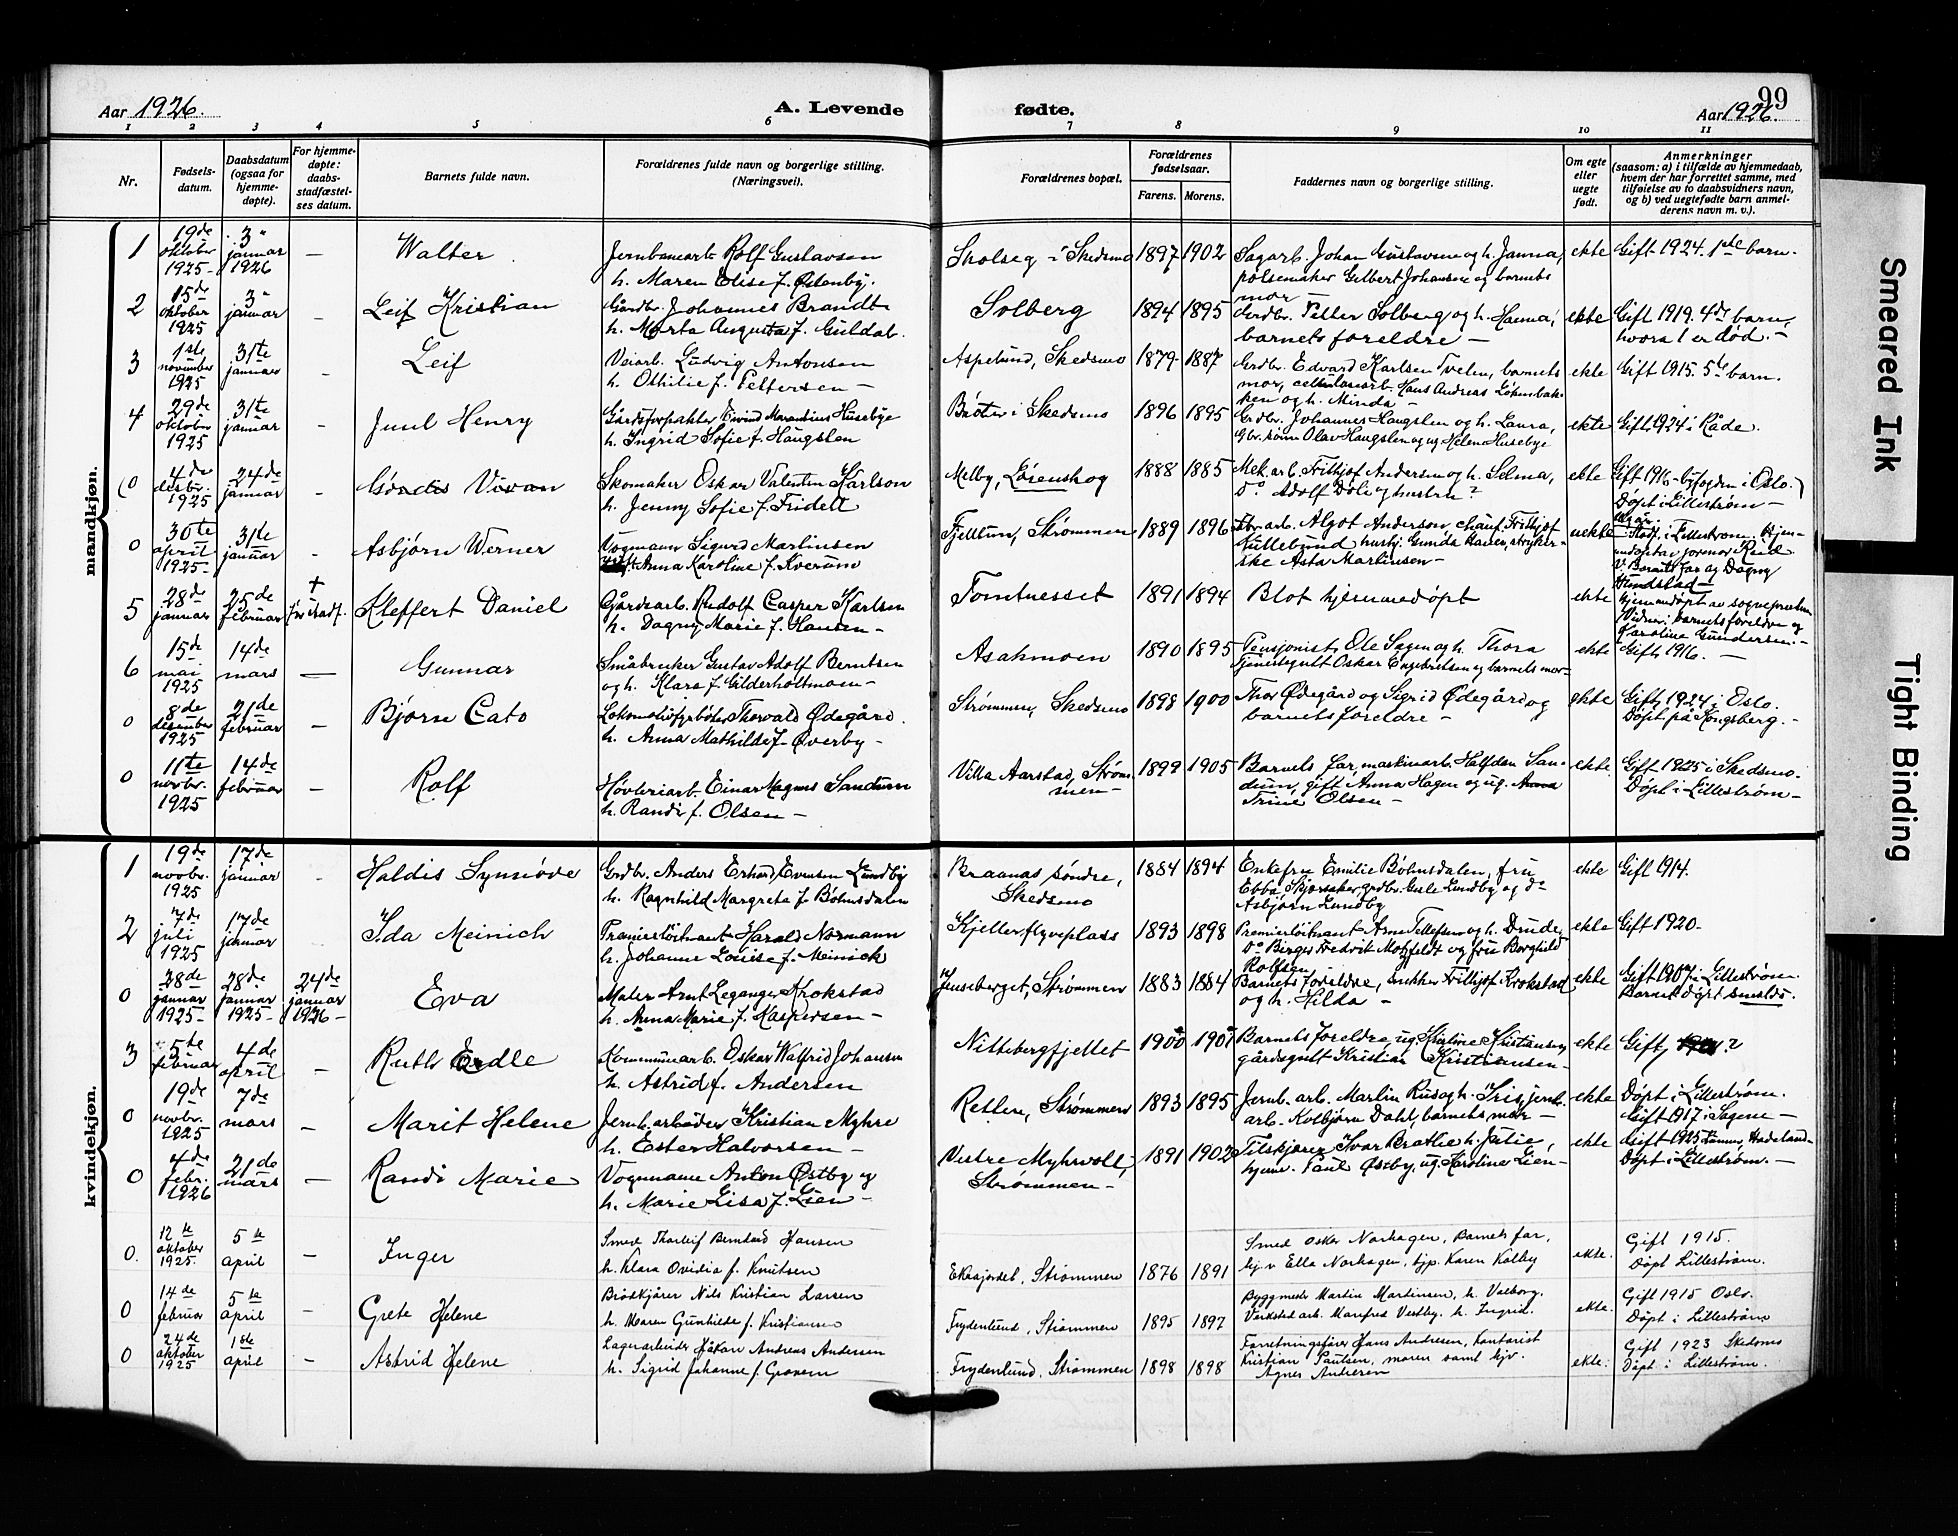 Aar 1926.
A. Levende fødte.
99
Aar 1926.
1 2 3 4 5 6 7 8 9 10 11
Nr.
Fødsels-
datum.
Daabsdatum
(ogsaa for
hjemme-
døpte).
For hjemme-
døpte:
daabs-
stadfæstel-
ses datum.
Barnets fulde navn.
Forældrenes fulde navn og borgerlige stilling.
(Næringsvei).
Forældrenes bopæl.
Forældrenes
fødselsaar.
Farens. Morens.
Faddernes navn og borgerlige stilling.
Om egte
eller
uegte
født.
Anmerkninger
(saasom: a) i tilfælde av hjemmedaab,
hvem der har forrettet samme, med
tilføielse av to daabsvidners navn,
og b) ved uegtefødte barn anmel-
derens navn m. v.).
mandkjøn.
1
19de
oktober
1925
3
januar
1926
—
Walter
Jernbanearb. Rolf Gustavsen
h. Maren Elise f. Østenby.
i Skedsmo
1897 1902
Sagarb. Johan Gustavsen og h. Janna,
pølsemaker Gilbert Johansen og barnets
mor —
ekte
Gift 1924. 1ste barn.
2
15de
oktober
1925
3
januar
Leif Kristian
Gårdbr. Johannes Brandt
h. Marta Augusta f. Guldal.
Solberg
1894 1895
Grdbr. Petter Solberg og h. Hanna,
barnets foreldre —
ekte
Gift 1919. 4de barn,
hvorav 1 er død. —
3
1ste
november
1925
31te
januar
Leif
Veiarb. Ludvig Antonsen
h. Othilie f. Pettersen —
Aspelund, Skedsmo
1879 1887
Grdbr. Edvard Karlsen Tvelen, barnets
mor, Hans Andreas
og h. Minda —
ekte
Gift 1915. 5te barn.
4
29de
oktober
1925
31te
januar
Juul Henry
Gårdsforpakter Eivind Marandius Husebye
h. Ingrid Sofie f. Haugslen
Brøter i Skedsmo
1896 1895
Grdbr. Johannes Haugslen og h. Laura,
Gbr.sønn Olav Haugslen og ug Helen Husebye
ekte
Gift 1924 i Råde.
0
4de
desbr.
1925
24de
januar
Gerdis Vivan
Skomaker Oskar Valentin Karlson
h. Jenny Sofie f. Fridell
Melby, Lørenskog
1888 1885
Mek.arb. Fritjof Andersen og h. Selma,
do Adolf Døli og hustru ?
ekte
Gift 1916 byfogden i Oslo.
Døpt i Lillestrøm —
0
30te
april
1925
31te
januar
Asbjørn Werner
Vognmann Sigurd Martinsen
Anna Karoline f. Kverum
Fjelltun, Strømmen
1889 1896
arb. Algot Anderson, chauf. Fritjof
Nullelund, hustj. Gunda Hauer, stryker-
ske Asta Martinsen —
uekte
i Lillestrøm. Hjem-
v. Barnets far og Dagny
Hundstad —
5
28de
januar
25de
februar
+
før stadf.
Kleffert Daniel
Gårdsarb. Rudolf Casper Karlsen
h. Dagny Marie f. Hansen —
Tomtnesset
1891 1894
Blot hjemmedøpt
ekte
Hjemmedøpt av sogneprsten
Vidner: barnets foreldre og
Karoline Gundersen. —
6
15de
mai
1925
14de
mars
—
Gunnar
Småbruker Gustav Adolf Berntsen
og h. Klara f. Gilderholtmoen —
Asakmoen
1890 1895
Pensjonist Ole Sagen og h. Thora
Tjenestegutt Oskar Engebretsen og barnets mor —
ekte
Gift 1916. —
0
8de
desember
1925
21de
februar
—
Bjørn Cato
Lokomotivfyrbøter Thorvald Ødegård.
h. Anna Mathilde f. Øverby —
Strømmen, Skedsmo
1898 1900
Thor Ødegård og Sigrid Ødegård og
barnets foreldre —
ekte
Gift 1924 i Oslo.
Døpt på Kongsberg. —
0
11te
novbr.
1925
14de
februar
—
Rolf
Høvleriarb. Einar Magnus Sandum
h. Randi f. Olsen —
Villa Aarstad, Strøm-
men —
1899 1905
Barnets far, maskinarb. Halfdan San-
dum, gift Anna Hagen og ug. Anna
Trine Olsen —
ekte
Gift 1925 i Skedsmo.
Døpt i Lillestrøm —
kvindekjøn.
1
19de
novbr.
1925
17de
januar
Haldis Synnøve
Grdbr. Anders Erhard Evensen Lundby
h. Ragnhild Margrete f. Bøhnsdalen
Braanas søndre,
Skedsmo
1884 1894
Enkefru Emilie Bøhnsdalen, fru
Ebba Skjørsaker, grdbr. Gisle Lundby og do
Asbjørn Lundby
ekte
Gift 1914.
2
7de
juli
1925
17de
januar
Ida Meinich
Premierløitnant Harald Normann
h. Johanne Louise f. Meinich
Kjeller flyveplass
1893 1898
Premierløitnant Arne Tellefsen og h. Drude,
do Birger Fredrik Motzfeldt og fru Borghild
Rolfsen
ekte
Gift 1920.
0
28de
januar
1925 —
28de
januar
1925 —
24de
januar
1926 —
Eva
Maler Arnt Leganger Krokstad
h. Anna Marie f. Kaspersen —
Jenseberget, Strømmen
1883 1884
Barnets foreldre, snekker Fritjof Krokstad
og h. Hilda —
ekte
Gift 1907 i Lillestrøm.
Barnet døpt smstds.
3
5te
februar
4de
april
—
Ruth Erdle
Kommunearb. Oskar Walfrid Johansen
h. Astrid f. Andersen
Nittebergfjellet
1900 1901
Barnets foreldre, ug. Kristiansen,
gårdsgutt Kristian Kristiansen —
ekte
Gift ?
0
19de
novbr.
1925
7de
mars
—
Marit Helene
Jernb. arbeider Kristian Myhre
h. Ester Halvorsen —
Retten, Strømmen
1893 1895
Jernb. arb. Martin Rus og h. Iris, jernb.
arb. Kolbjørn Dahl, barnets mor —
ekte
Døpt i Lillestrøm.
Gift 1917 i Sagene —
0
4de
febr.
1926
21de
mars
—
Randi Marie
Vognmann Anton Østby og
h. Marie Lisa f. Lien —
Vestre Myhrvoll,
Strømmen —
1891 1902
Tilskjærer Ivar Bratlie h. Julie,
hjem. Paul Østby, ug. Karoline Lien —
ekte
Gift 1925 Lunner, Hadeland —
Døpt i Lillestrøm. —
0.
12te
oktober
1925.
5te
april
—
Inger
Smed Thorleif Berntard Hansen
h. Klara Ovidia f. Knutsen
Ekrajordet, Strømmen
1876 1891
Smed Oskar Norhagen, Barnets far,
hj. v Ella Norhagen, tjp. Karen Kolby
ekte.
Gift 1915.
Døpt Lillestrøm.
0
14de
februar
5te
april
—
Grete Helene
Brødkjører Nils Kristian Larsen
h. Maren Gunhilde f. Kristiansen
Frydenlund, Strømmen
1895 1897
Byggmester Martin Martinsen, h. Valborg.
Verkstedarb. Manfred Vestby. h. Ingrid.
ekte.
Gift 1915 Oslo.
Døpt i Lillestrøm
0
24de
oktober
1925
1ste
april
—
Astrid Helene
Lagerarbeider Håkon Andreas Andersen
h. Sigrid Johanne f. Gravem
Frydenlund, Strømmen
1898 1898
Forretningsfører Hans Andresen, kontorist
Kristian Paulsen, moren samt hjv.
Agnes Andresen
ekte.
Gift 1923 Skedsmo
Døpt i Lillestrøm.
Smeared Ink
Tight Binding